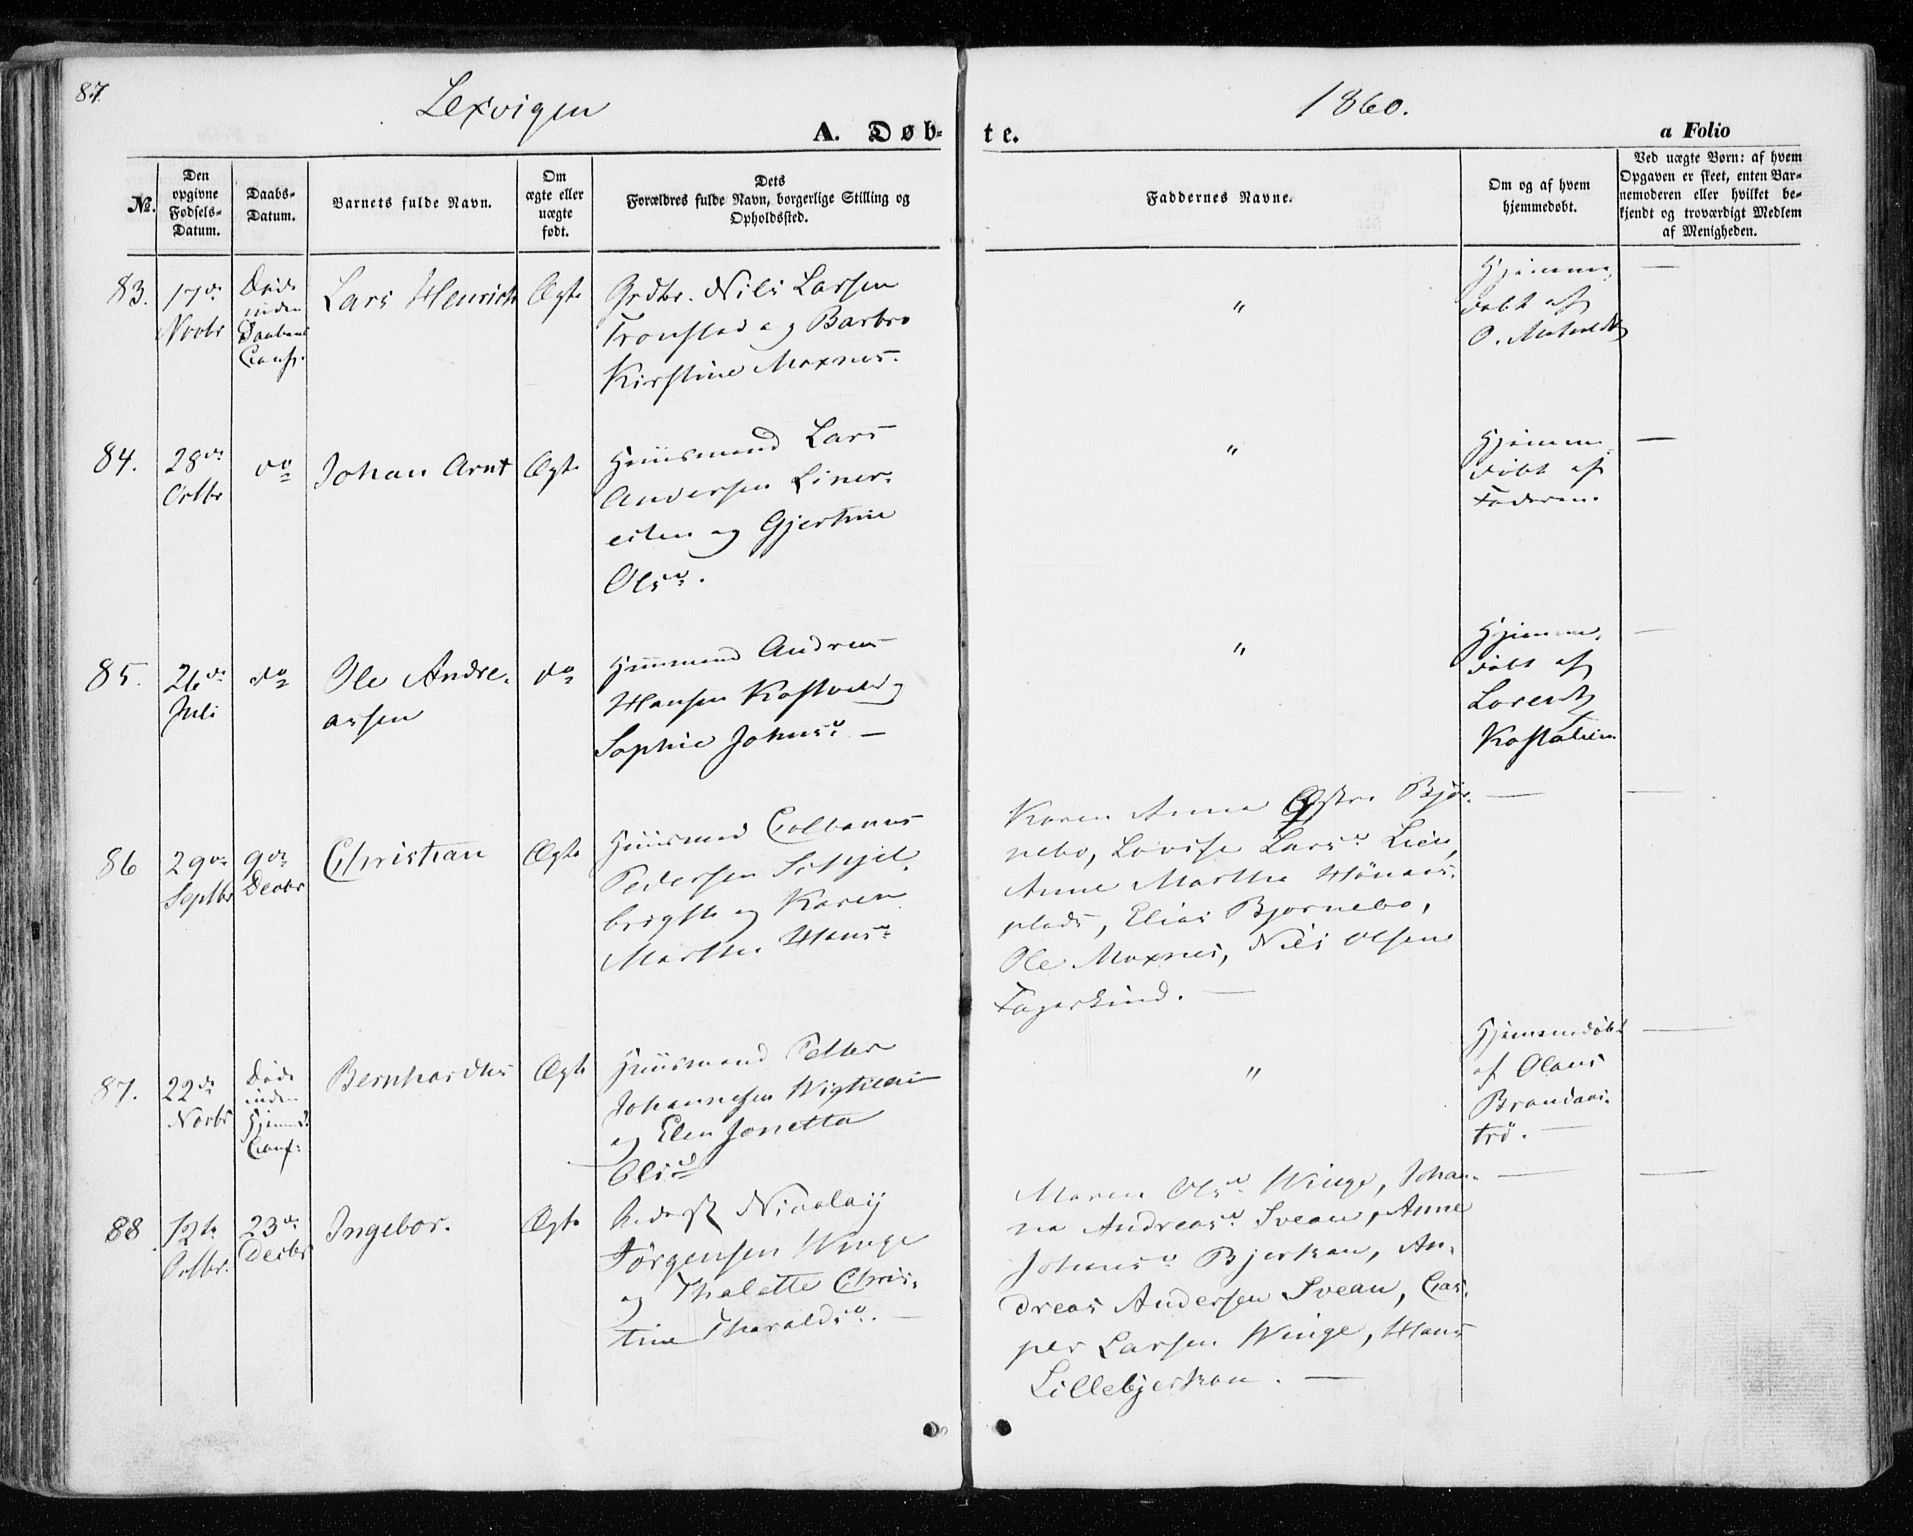 87.
Lexvigen
1860.
A. Døb-
te.
a Folio
№.
Den
opgivne
Fødsels-
Datum.
Daabs-
Datum.
Barnets fulde Navn.
Om
ægte eller
uægte
født.
Dets
Forældres fulde Navn, borgerlige Stilling og
Opholdssted.
Faddernes Navne.
Om og af hvem
hjemmedøbt.
Ved uægte Børn: af hvem
Opgaven er skeet, enten Bar-
nemoderen eller hvilket be-
kjendt og troværdigt Medlem
af Menigheden.
83.
17de
Novbr
Døde
inden
Daabens
Conf.
Lars Henrich
Ægte
Grdbr. Nils Larsen
Tronstad og Barbro
Kirstine Moxnes.
"
Hjemme-
døbt af
O.
—
84.
28de
Octbr
do
Johan Arnt
Ægte
Huusmand Lars
Andersen Liner-
eiten og Gjertine
Olsd.
"
Hjemme
døbt af
Faderen.
—
85.
26de
Juli
do
Ole Andre-
assen
do
Huusmand Andreas
Hansen og
Sophie Johnsd. —
"
Hjemme-
døbt af
Lorentz
—
86
29de
Septbr
9de
Decbr
Christian
Ægte
Huusmand Colbanus
Pedersen Schjel-
brigste og Karen
Marthe Hansd.
Karen Anna Østre Bjør-
nebo, Lovise Larsd. Lien,
Anne Martha
plads, Elias Bjørnebo,
Ole Moxnes, Nils Olsen
Fagerlind. —
—
—
87.
22de
Novbr
Døde
inden
Hjemmed.
Conf.
Bernhardus
Ægte
Huusmand Petter
Johannesen
og Elen Jonetta
Olsd.
"
Hjemmedøbt
af Olaus
Brandaas-
trø. —
—
88.
12te
Octbr.
23de
Decbr
Ingebor.
Ægte
Nicolay
Jørgensen Winge
og Thalette Chris-
tine Tharaldsd. —
Maren Olsd. Winge, Johan-
na Andreasd. Svean, Anne
Johnsd. Bjerkan, An-
dreas Andersen Svean, Cas-
per Larsen Winge, Hans
Lillebjerkan. —
—
—